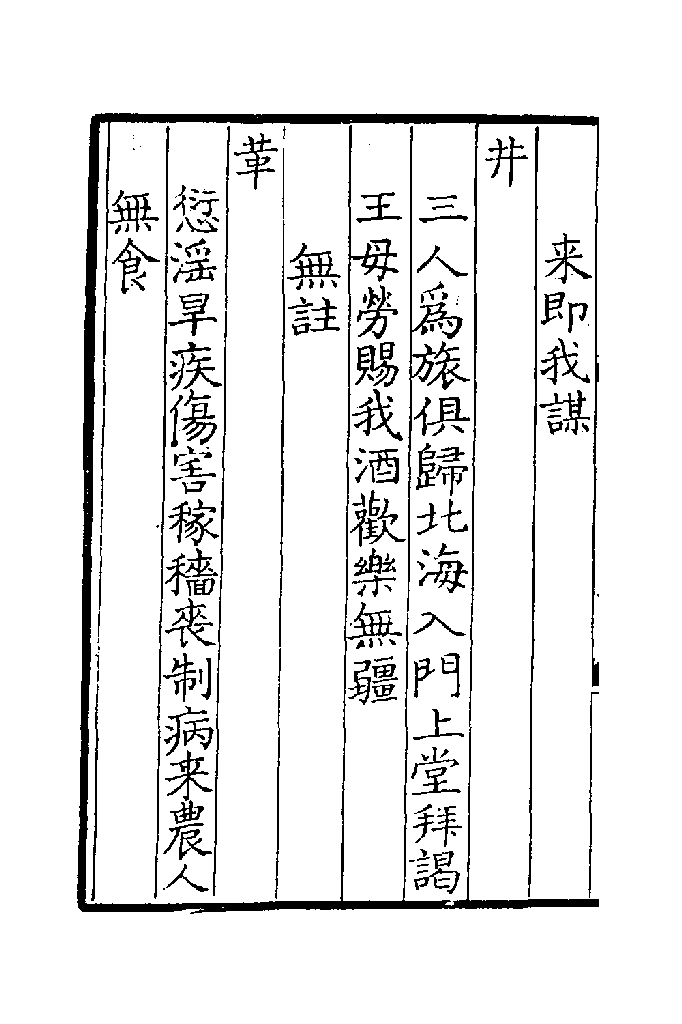 来即我謀
井
三人爲旅俱歸北海入門上堂拜謁
王母勞賜我酒歡樂無疆
無註
革
愆淫旱疾傷害稼穡喪制病来農人
無食